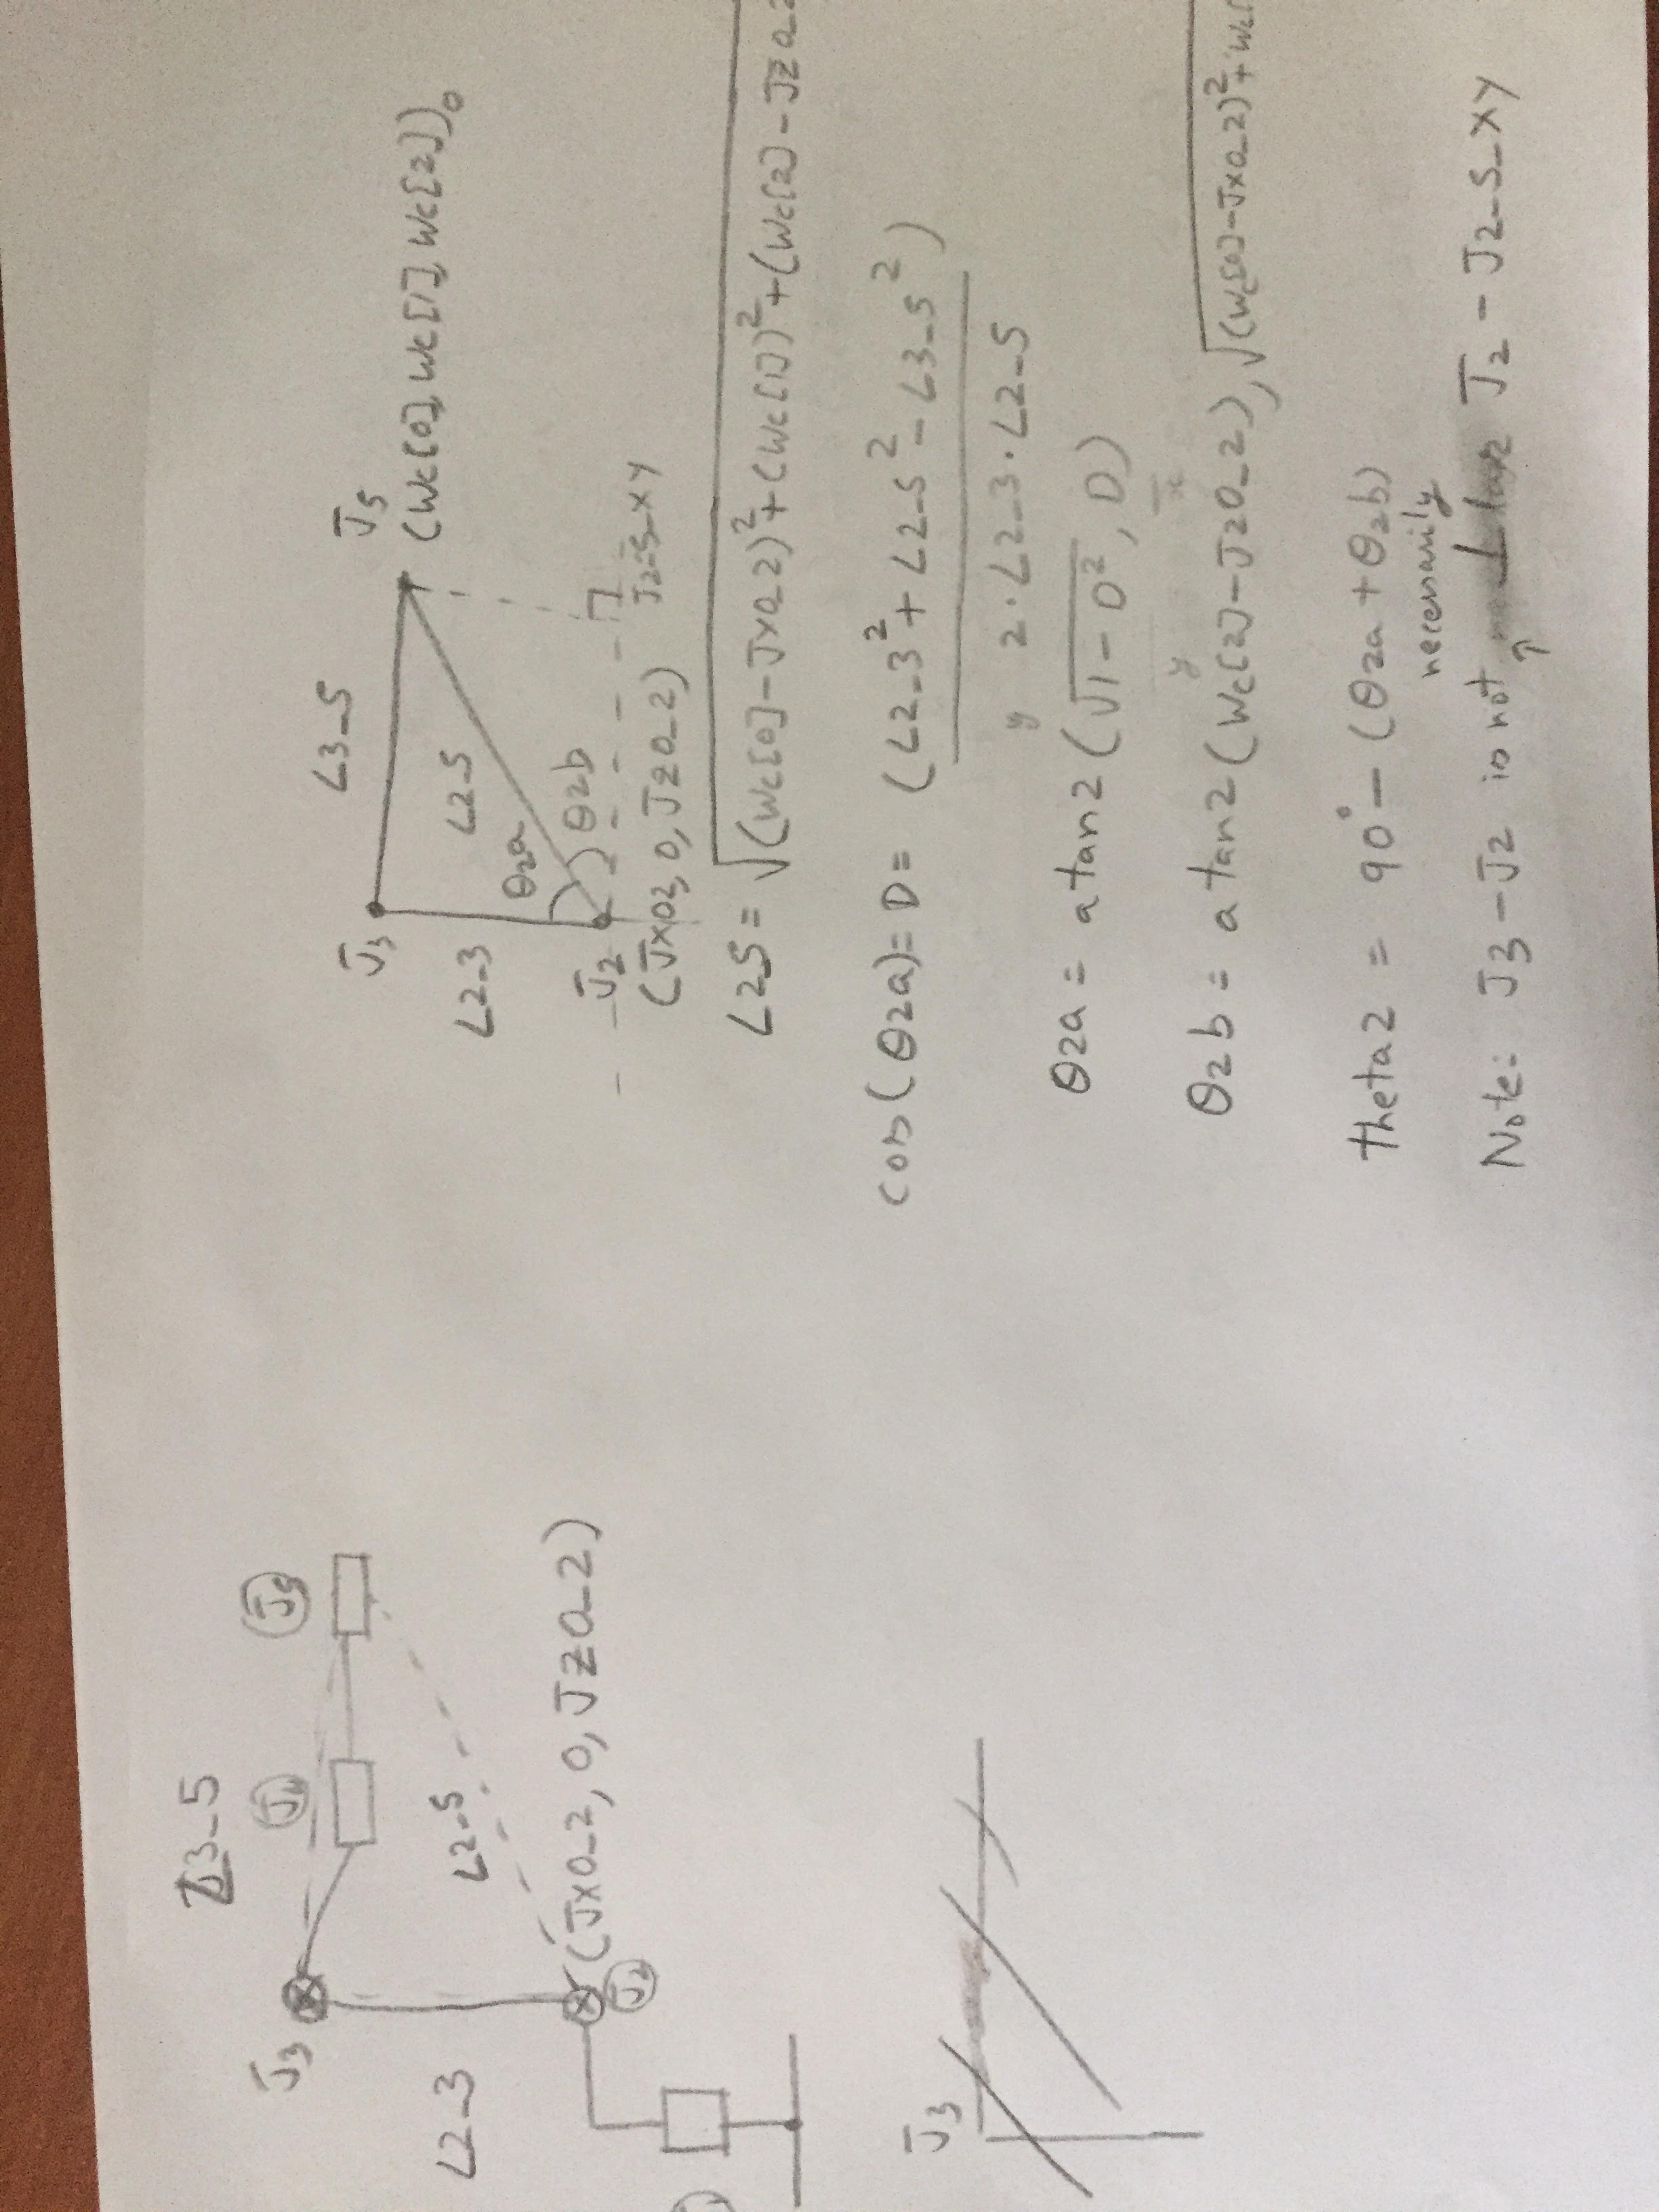 L3-5
J3
J5
L2-3
L2-5
(Jx0-2, 0, Jz0-2)
J2
J3
L3-5
J3
J5
(Wc[0], Wc[1], Wc[2])0
L2-3
L2-5
θ2a
θ2b
J2
J2-5-xy
(Jx02, 0, Jz0-2)
L25 = √(Wc[0]-Jx0-2)²+(Wc[1])²+(Wc[2]-Jz0-2
cos(θ2a)=D= (L2-3²+L2-5²-L3-5²)
2·L2-3·L2-5
y
θ2a = atan2(√1-D², D)
x
y
θ2b = atan2(Wc[2]-Jz0-2), √(Wc[0]-Jx0-2)²+Wc[
theta2 = 90°-(θ2a+θ2b)
necessarily
Note: J3-J2 is not ⊥lar J2-J2-5-xy